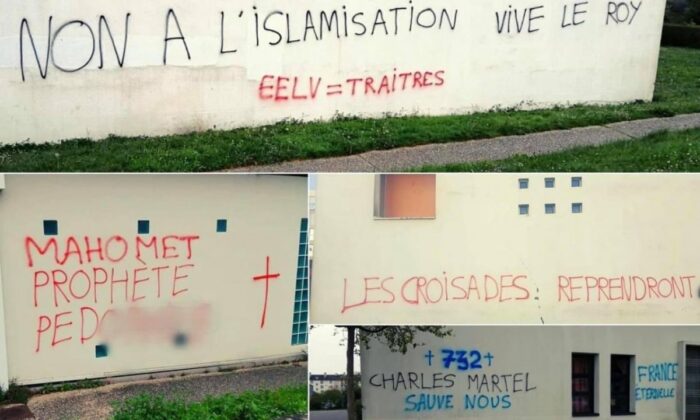 NON A L'ISLAMISATION VIVE LE ROY
EELV = TRAITRES
MAHOMET
PROPHÈTE
LES CROISADES REPRENDRONT
+ 732 +
CHARLES MARTEL
SAUVE NOUS
FRANCE
ETERNELLE